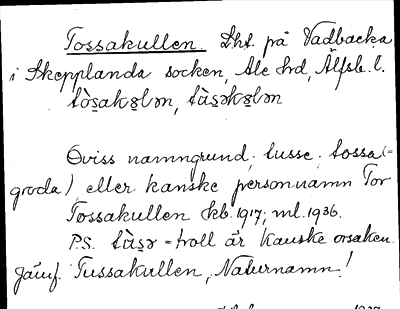 Tossakullen Lht. på Vadbacka
i Skepplanda socken, Ale hrd, Älfsb. l.
tòs̲akɷlən, tùs̲əkɷlən
Oviss namngrund; tusse; tossa (=
groda), eller kanske personnamn Tor
Tossakullen kb. 1917; ml. 1936.
P.S. tùs̲ə = troll är kanske orsaken.
Jämf. Tussakullen, Naturnamn!